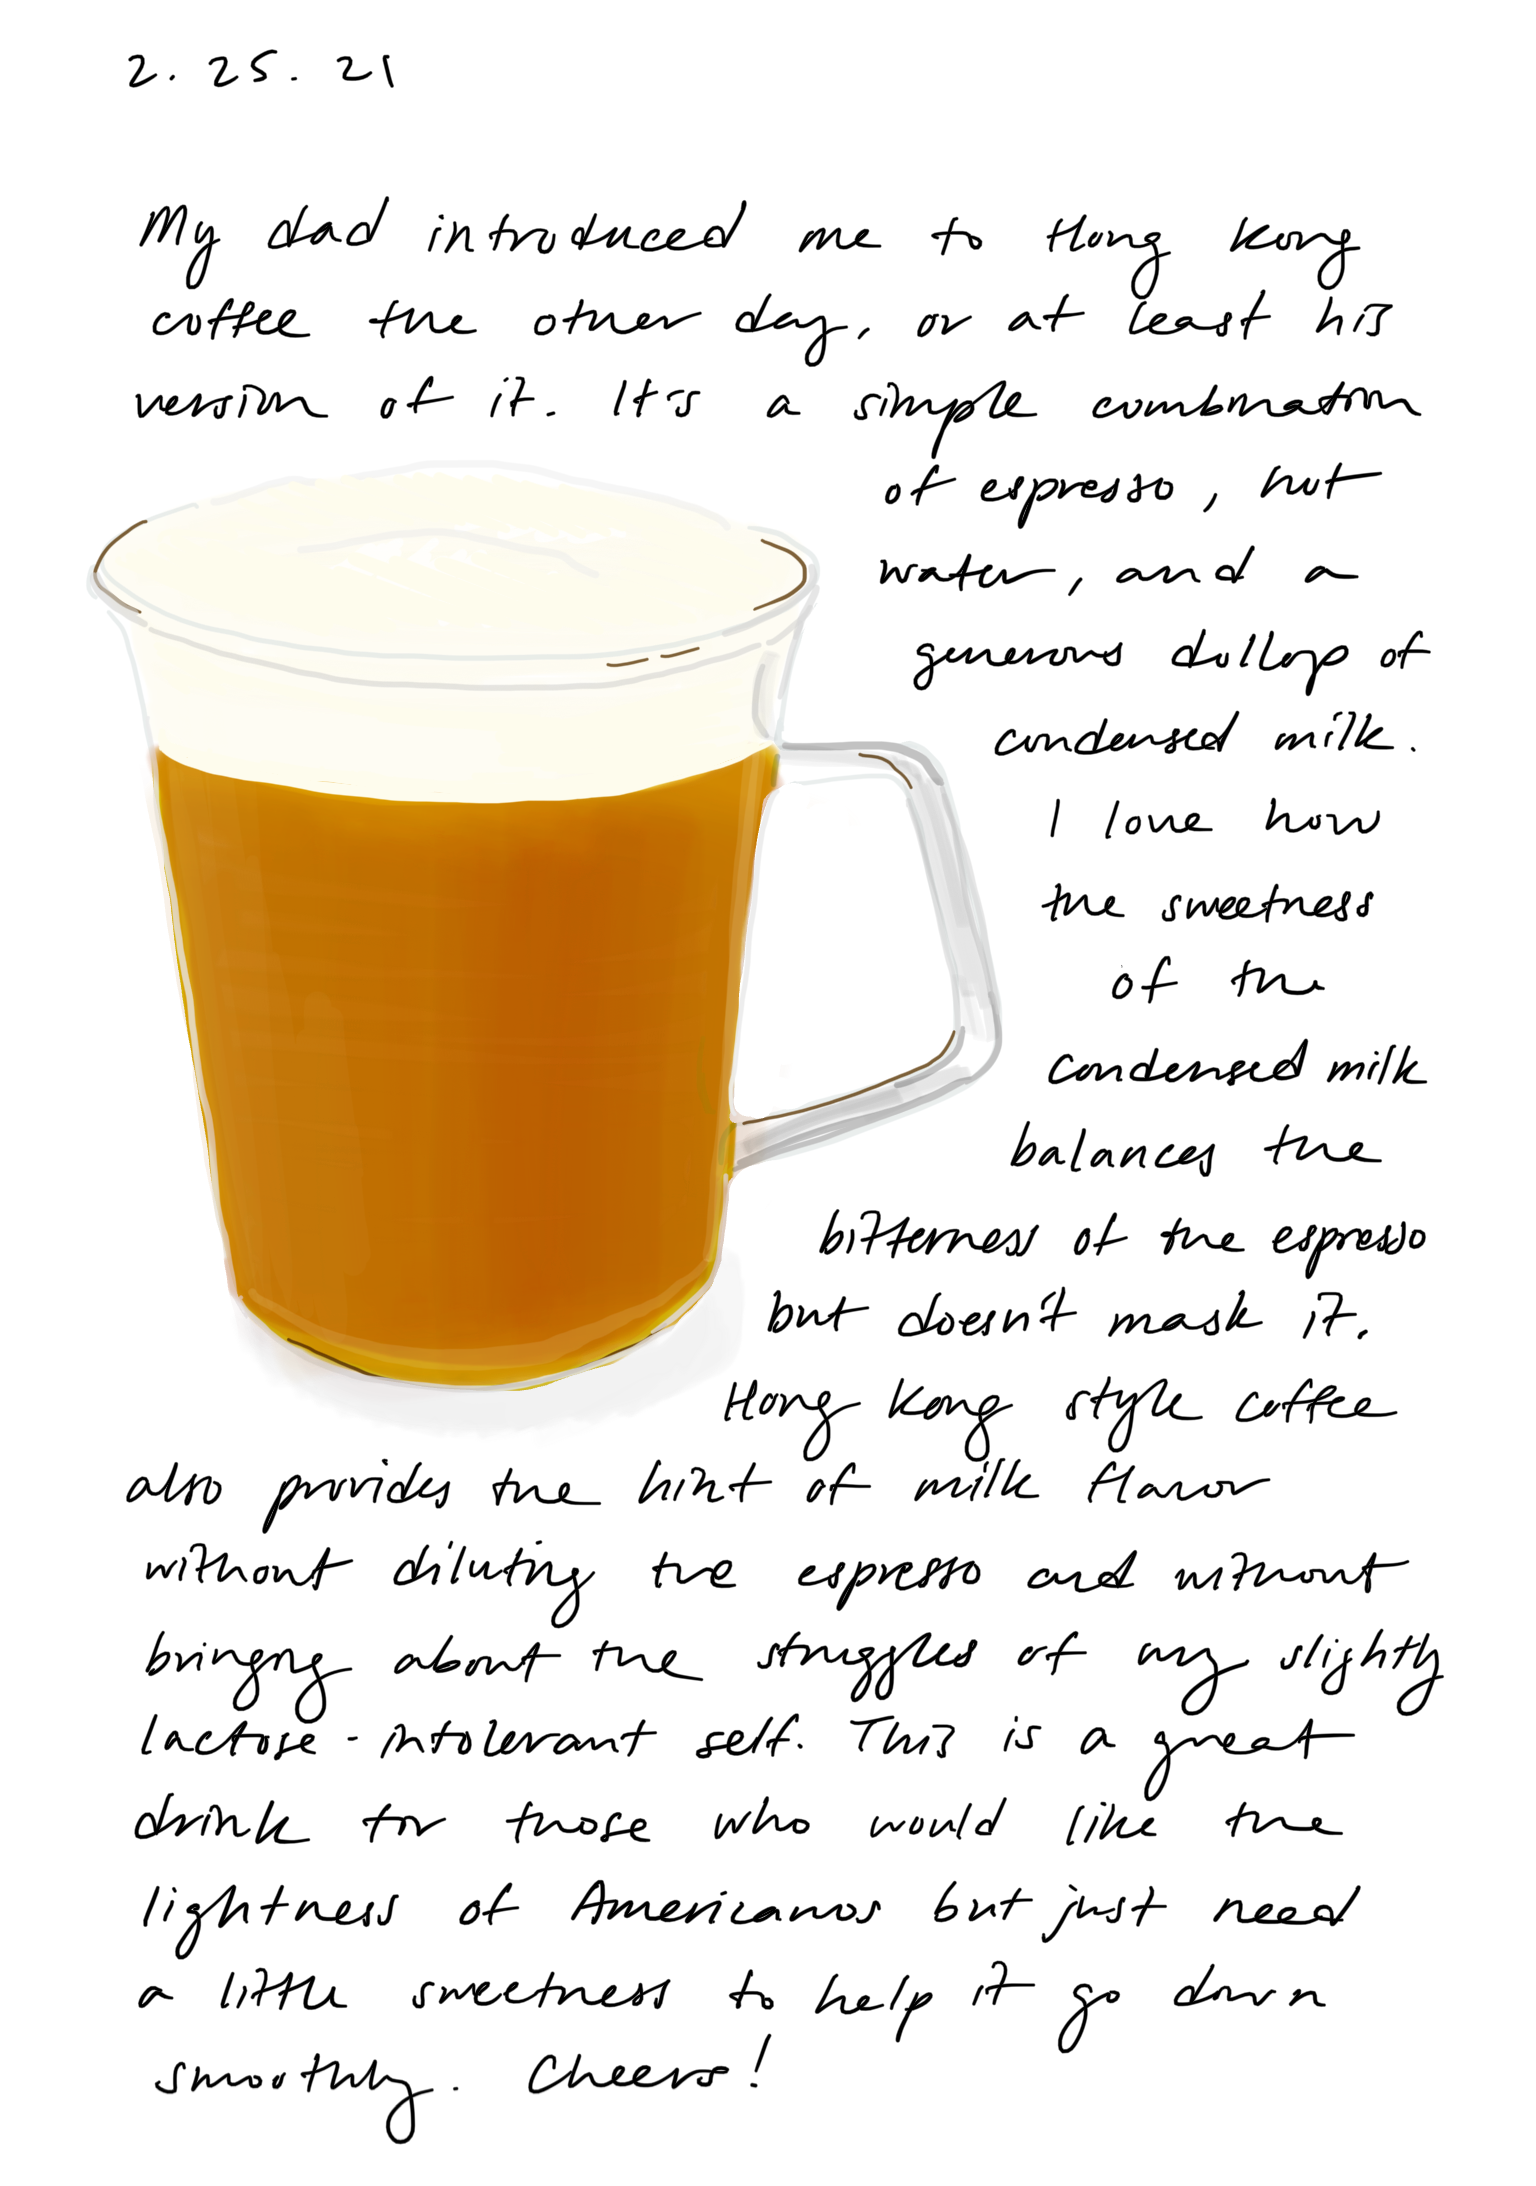 2. 25. 21
My dad introduced me to Hong Kong
coffee the other day, or at least his
version of it. It's a simple combination
of espresso, hot
water, and a
generous dollop of
condensed milk.
I love how
the sweetness
of the
condensed milk
balances the
bitterness of the espresso
but doesn't mask it.
Hong Kong style coffee
also provides the hint of milk flavor
without diluting the espresso and without
bringing about the struggles of my slightly
lactose-intolerant self. This is a great
drink for those who would like the
lightness of Americanos but just need
a little sweetness to help it go down
smoothly. Cheers!